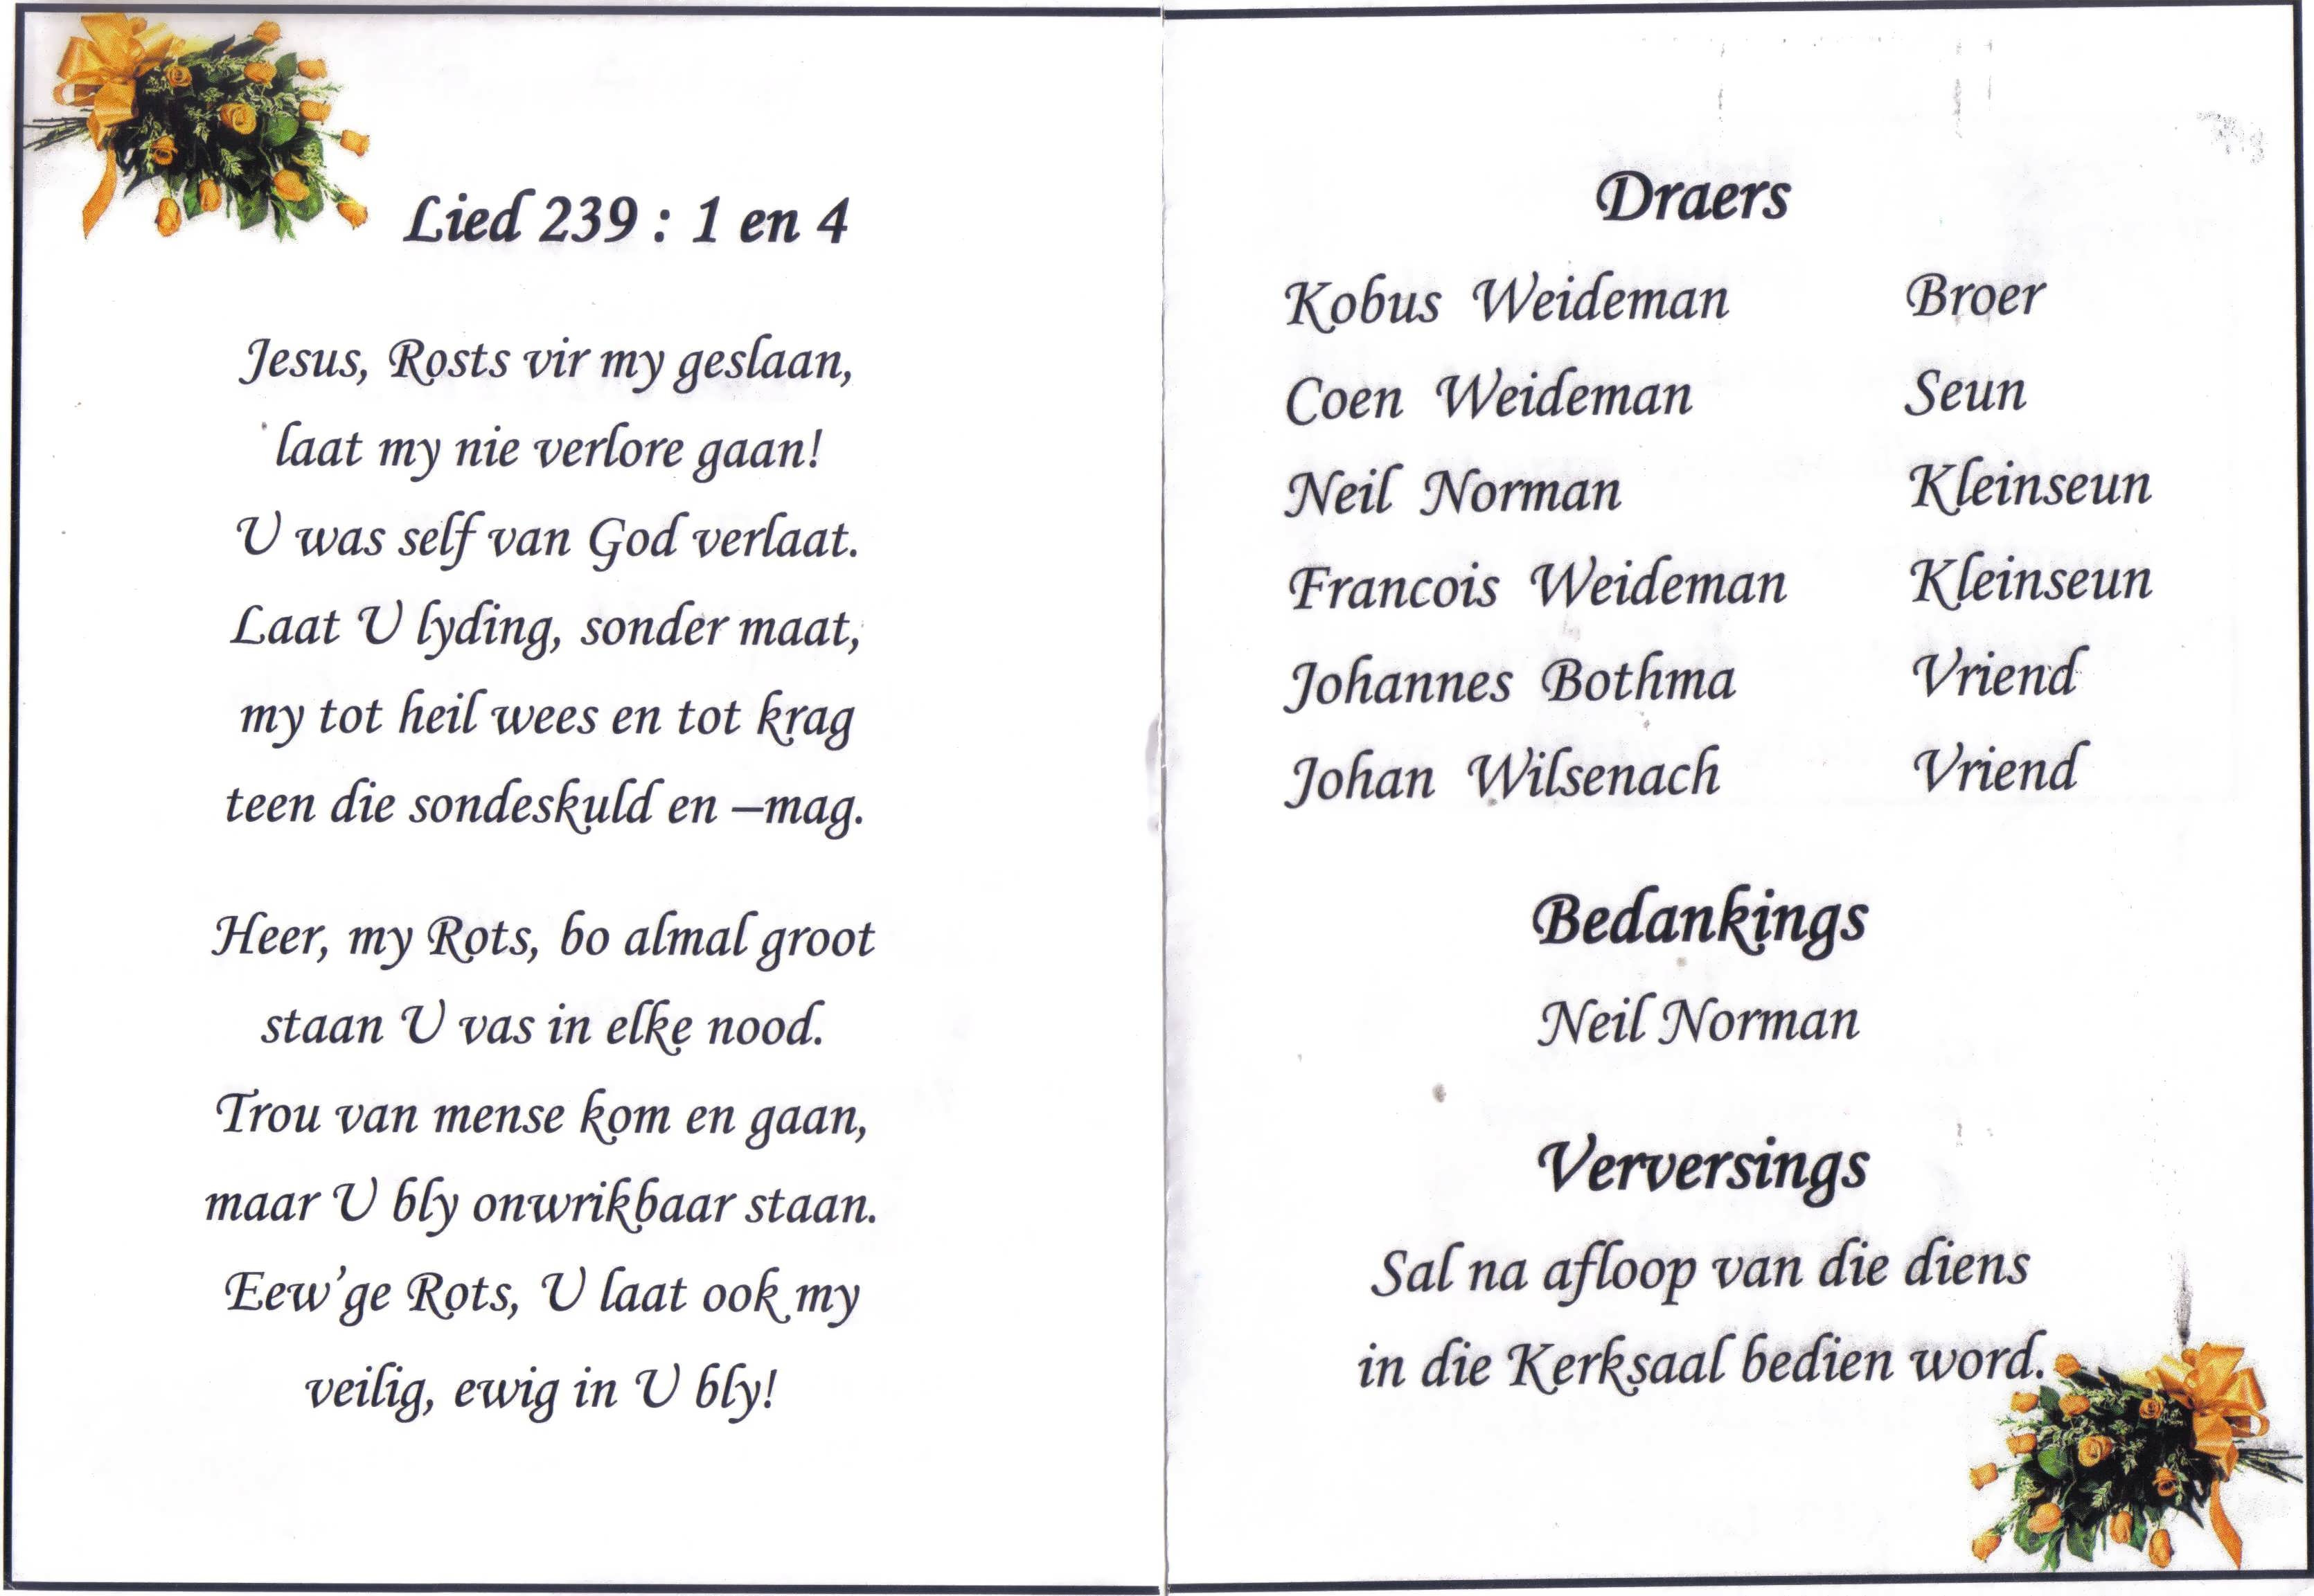 Lied 239 : 1 en 4
Jesus, Rosts vir my geslaan,
laat my nie verlore gaan!
U was self van God verlaat.
Laat U lyding, sonder maat,
my tot heil wees en tot krag
teen die sondeskuld en –mag.
Heer, my Rots, bo almal groot
staan U vas in elke nood.
Trou van mense kom en gaan,
maar U bly onwrikbaar staan.
Eew'ge Rots, U laat ook my
veilig, ewig in U bly!
Draers
Kobus Weideman Broer
Coen Weideman Seun
Neil Norman Kleinseun
Francois Weideman Kleinseun
Johannes Bothma Vriend
Johan Wilsenach Vriend
Bedankings
Neil Norman
Verversings
Sal na afloop van die diens
in die Kerksaal bedien word.